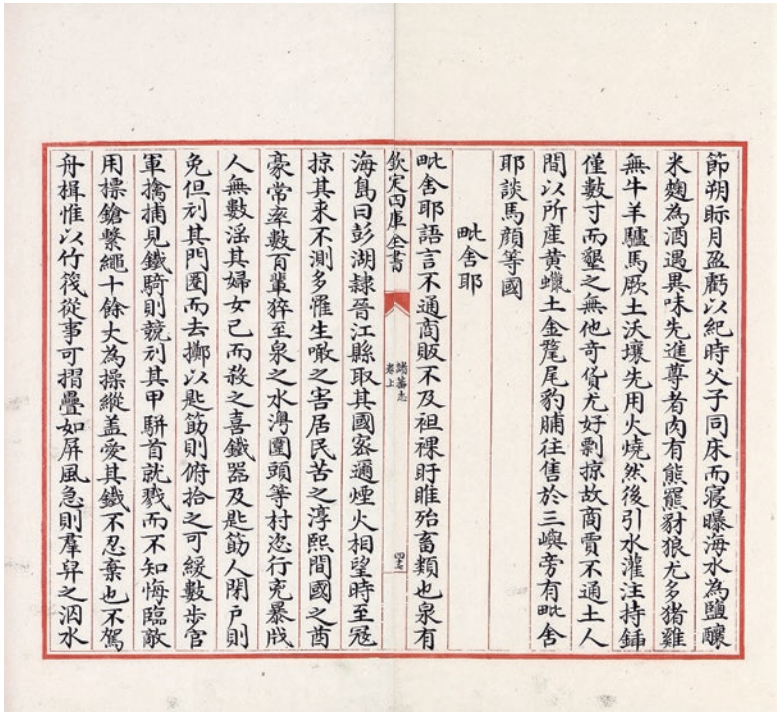 節朔眎月盈虧以紀時父子同床而寢曝海水為鹽釀
米麴為酒遇異味先進尊者肉有熊羆豺狼尤多猪雞
無牛羊驢馬厥土沃壤先用火燒然後引水灌注持鍤
僅數寸而墾之無他奇貨尤好剽掠故商賈不通土人
間以所産黄蠟土金氂尾豹脯往售於三嶼旁有毗舍
耶談馬顔等國
毗舍耶
毗舍耶語言不通商販不及袒裸盱睢殆畜類也泉有
欽定四庫全書
諸蕃志
卷上
海島曰彭湖隷晉江縣取其國宻邇煙火相望時至宼
掠其来不測多罹生噉之害居民苦之淳熙間國之酋
豪常率數百輩猝至泉之水灣圍頭等村恣行兇暴戕
人無數淫其婦女已而殺之喜鐵器及匙筯人閉户則
免但刓其門圈而去擲以匙筯則俯拾之可緩數歩官
軍擒捕見鐵騎則競刓其甲駢首就戮而不知悔臨敵
用摽鎗繫繩十餘丈為操縱盖愛其鐵不忍棄也不駕
舟楫惟以竹筏從事可摺疊如屏風急則羣舁之泅水